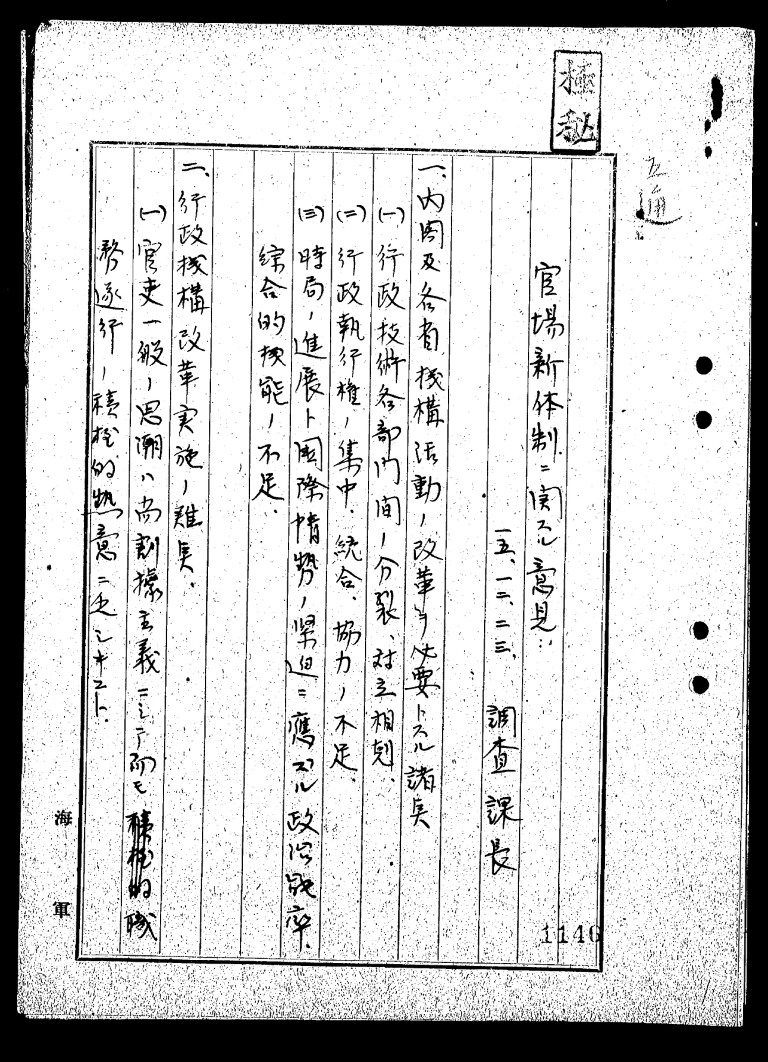 極秘
五通
官場新体制ニ関スル意見
一五、一二、二三、 調査課長
一、内閣及各省機構活動ノ改革ヲ必要トスル諸点
(一) 行政技術各部門間ノ分裂、対立相剋、
(二) 行政執行権ノ集中、統合、協力ノ不足、
(三) 時局ノ進展ト国際情勢ノ緊迫ニ應ズル政治能率、
綜合的機能ノ不足、
二、行政機構改革実施ノ難点、
(一) 官吏一般ノ思潮ハ尚割據主義ニシテ而モ積極的職
務遂行ノ積極的熱意ニ乏シキコト、
海軍
1146